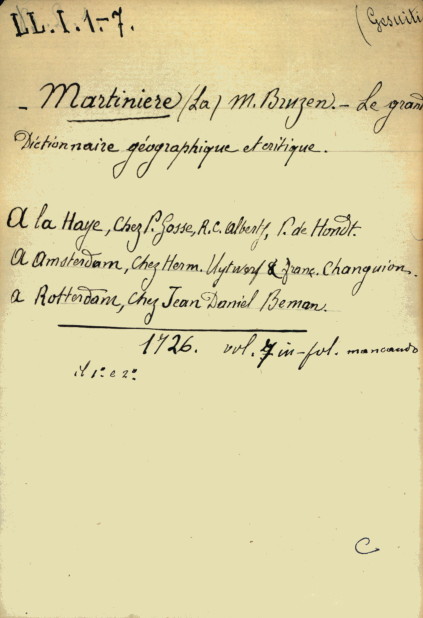 LL. I. 1-7. (Gesuiti
- Martiniere (La) M. Bruzen. - Le grand
Dictionnaire géographique et critique.
A la Haye, Chez P. Gosse, R. C. Alberts, P. de Hondt.
A Amsterdam, Chez Herm. Uytwerf & franc. Changuion.
a Rotterdam, Chez Jean Daniel Beman.
1726. vol. 7 in-fol. mancando
il 1º e 2º
C